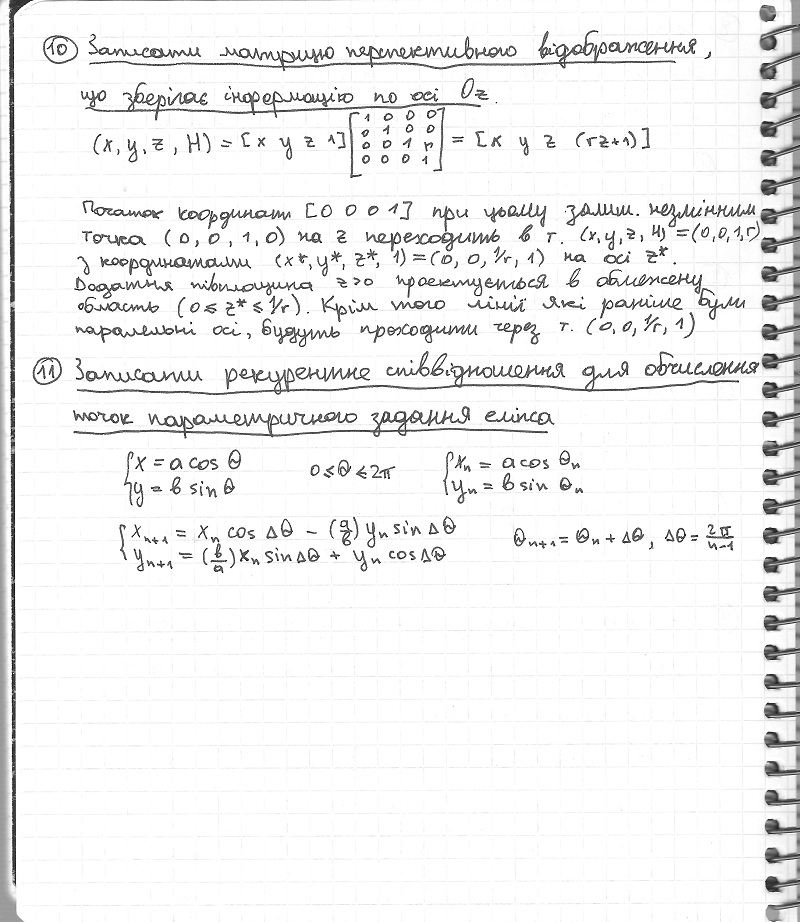 10 Записати матрицю перпективного відображення,
що зберігає інформацію по осі Oz.
(x, y, z, H) = [x y z 1] [1 0 0 0
0 1 0 0
0 0 1 r
0 0 0 1] = [x y z (rz+1)]
Початок координат [0 0 0 1] при цьому залиш. незмінним
точка (0, 0, 1, 0) на z переходить в т. (x, y, z, H) = (0, 0, 1, r)
з координатами (x*, y*, z*, 1) = (0, 0, 1/r, 1) на осі z*.
Додатня півплощина z>0 проектується в обмежену
область (0 ≤ z* ≤ 1/r). Крім того лінії які раніше були
паралельні осі, будуть проходити через т. (0, 0, 1/r, 1)
11 Записати рекурентне співвідношення для обчислення
точок параметричного задання еліпса
{x = a cos θ 0 ≤ θ ≤ 2π {xn = a cos θn
{y = b sin θ yn = b sin θn
{xn+1 = xn cos Δθ − (a/b) yn sin Δθ θn+1 = θn + Δθ, Δθ = 2π/(n−1)
{yn+1 = (b/a) xn sin Δθ + yn cos Δθ